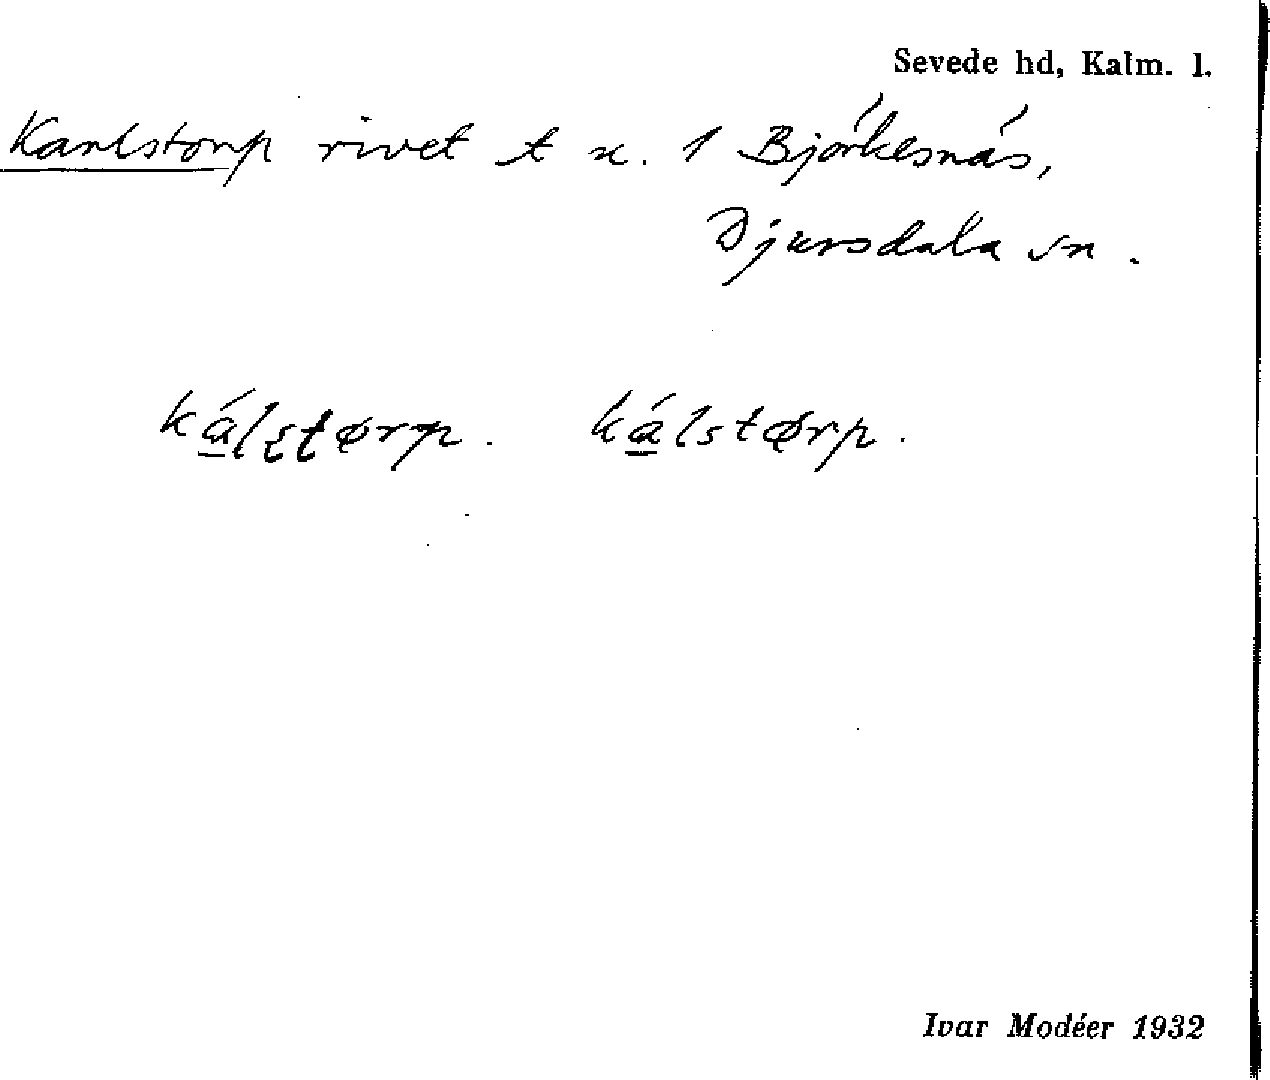 Sevede hd, Kalm. l.
Karlstorp rivet t n. 1 Björkesnäs,
Djursdala sn.
kálstørp. kálstørp.
Ivar Modéer 1932